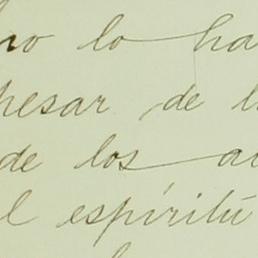 no lo ha
pesar de l
de los a
l espíritú